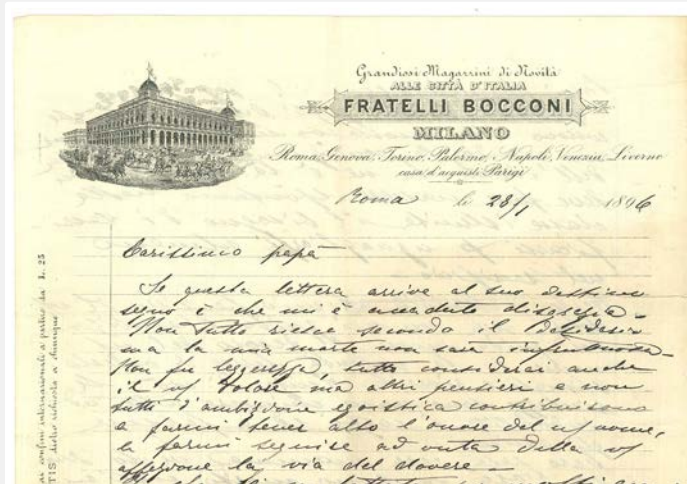 Grandiosi Magazzini di Novità
ALLE CITTÀ D'ITALIA
FRATELLI BOCCONI
MILANO
Roma, Genova, Torino, Palermo, Napoli, Venezia, Livorno
casa d'acquisti Parigi
Roma li 28/1 1896
Carissimo papà
Se questa lettera arriva al suo destino
segno è che mi è accaduta disgrazia -
Non tutto riesce secondo il desiderio
ma la mia morte non sarà infruttuosa -
Non fu leggerezza, tutto considerai anche
il vs/ dolore ma altri pensieri e non
tutti d'ambizione egoistica contribuirono
a farmi tener alto l'onore del ns/ nome,
e farmi seguire ad onta della vs/
affezione la via del dovere -
ai confini internazionali a partire da L. 25
TIS dietro richiesta a chiunque